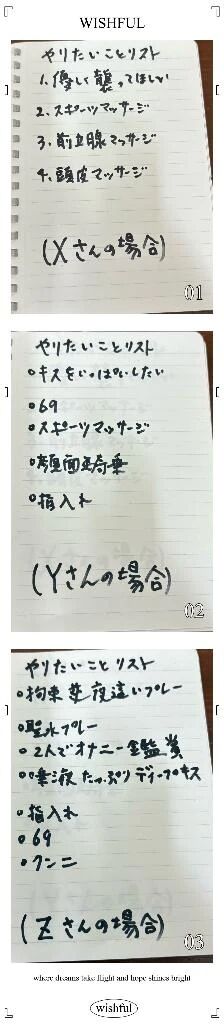 WISHFUL
やりたいことリスト
1. 優しく襲ってほしい
2. スポーツマッサージ
3. 前立腺マッサージ
4. 頭皮マッサージ
(Xさんの場合)
01
やりたいことリスト
キスをいっぱいしたい
69
スポーツマッサージ
顔面騎乗
指入れ
(Yさんの場合)
02
やりたいことリスト
拘束 夜這いプレー
聖水プレー
2人でオナニー鑑賞
唾液たっぷりディープキス
指入れ
69
クンニ
(Zさんの場合)
03
where dreams take flight and hope shines bright
wishful